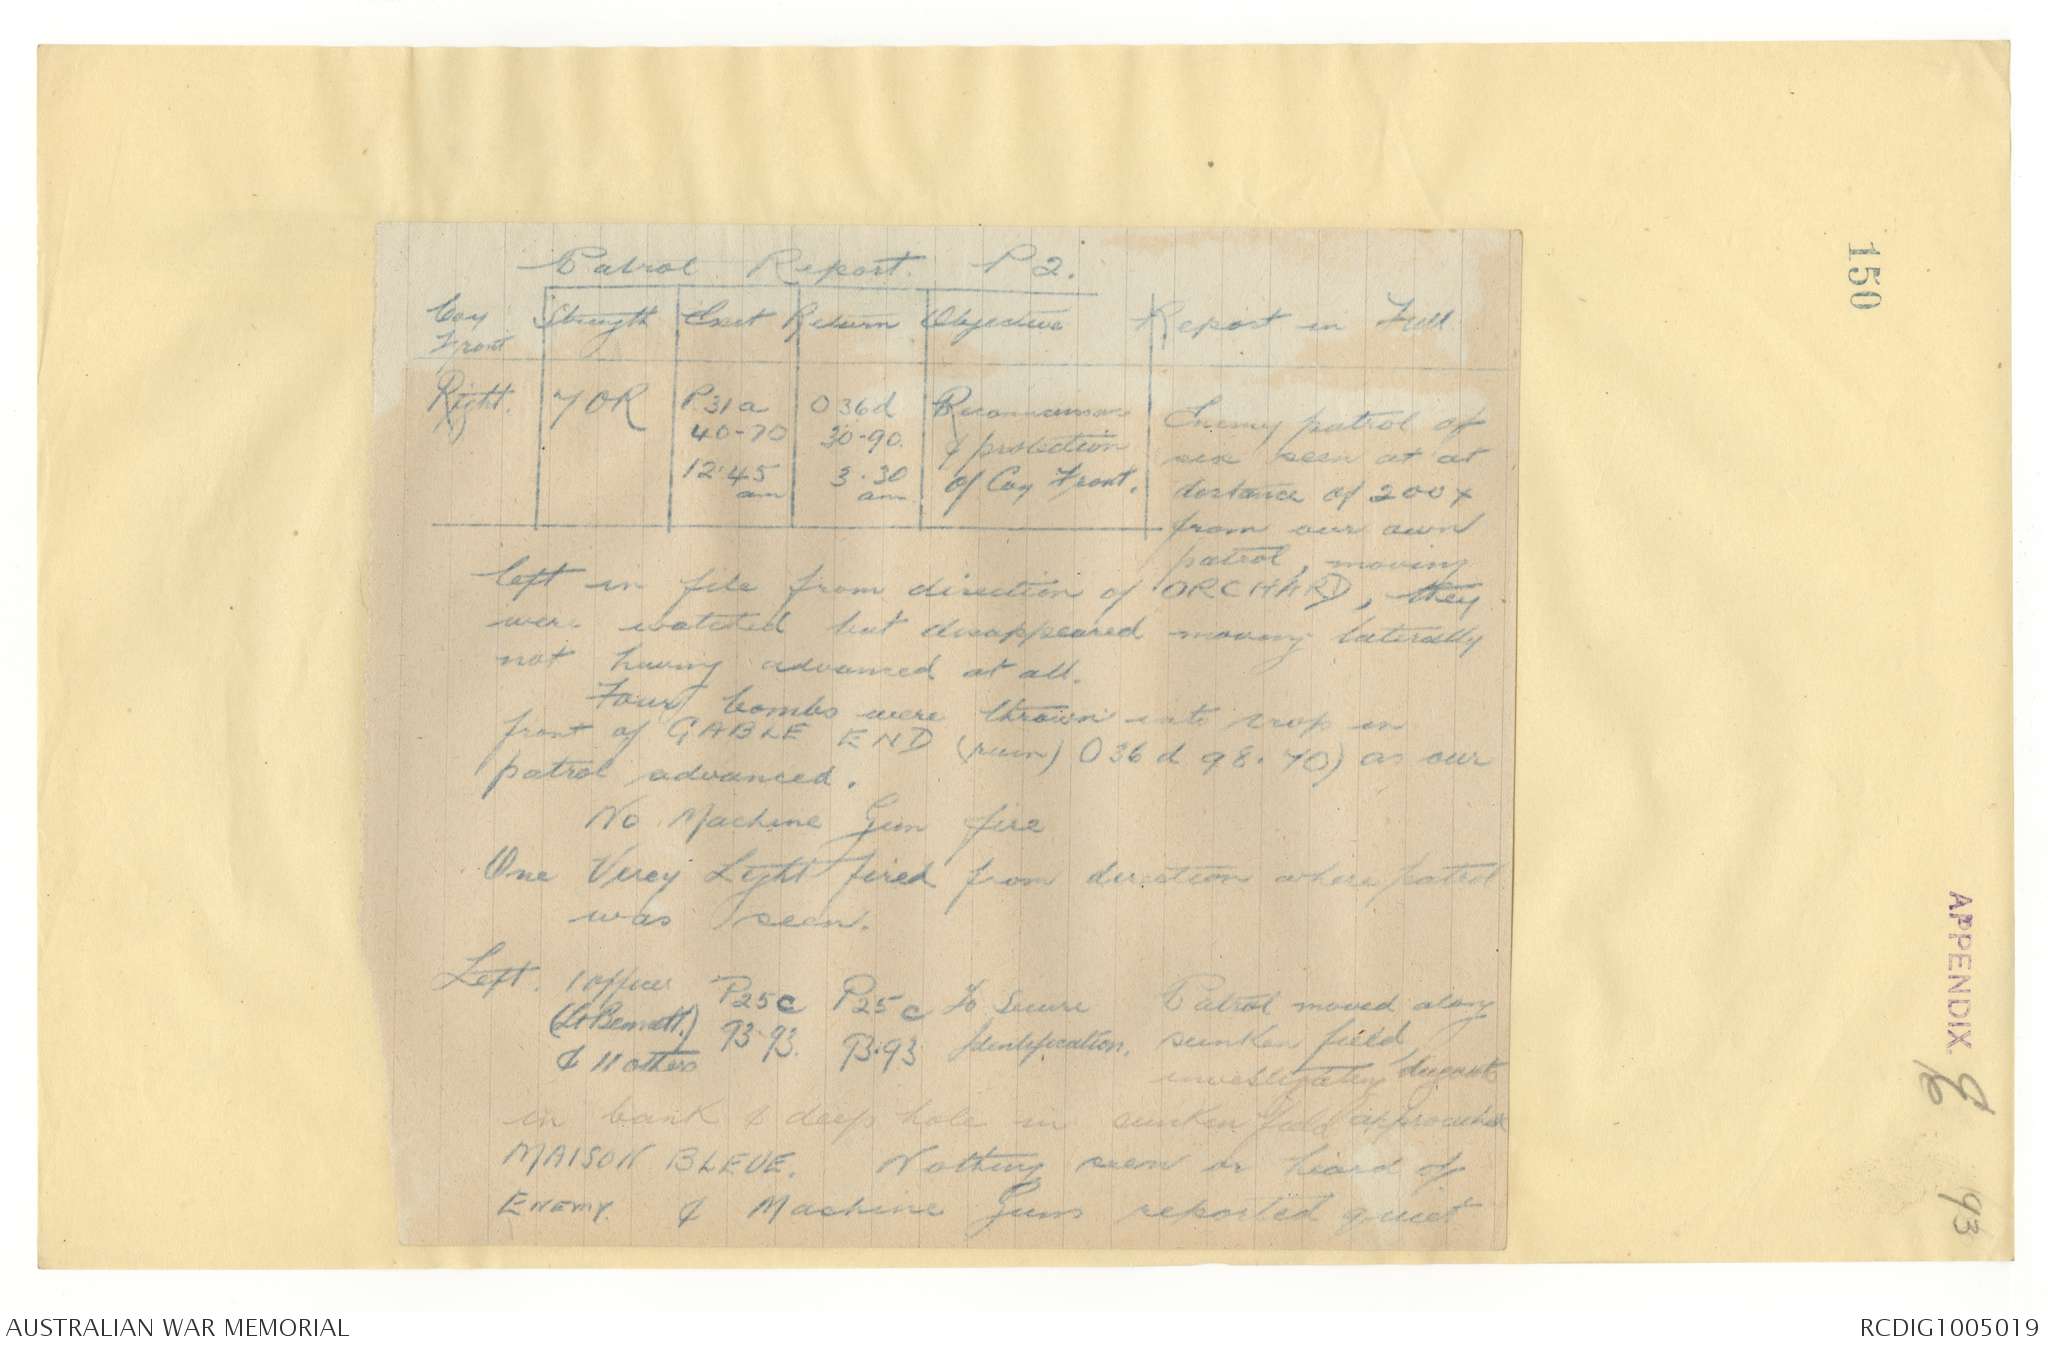 Patrol Report. P2.
Coy Front Strength Exit Return Objective Report in Full
Right. 7 OR P.31a O 36d Reconnaissance Enemy patrol of
40-70 30-90. & protection six seen at at
12.45 am 3.30 am of Coy Front. distance of 200x
from our own
patrol, moving
left in file from direction of ORCHARD, they
were watched but disappeared moving laterally
not having advanced at all.
Four bombs were thrown into crop in
front of GABLE END (ruin) O36d 98.70) as our
patrol advanced.
No Machine Gun fire
One Verey Light fired from direction where patrol
was seen.
Left. 1 officer P25c P25c To Secure Patrol moved along
(Lt Bennett.) 93.93. 93.93 Identification. sunken field
& 11 others investigating dugouts
in bank & deep hole in sunken field approached
MAISON BLEUE. Nothing seen or heard of
ENEMY. & Machine Guns reported quiet
150
APPENDIX
93
AUSTRALIAN WAR MEMORIAL
RCDIG1005019